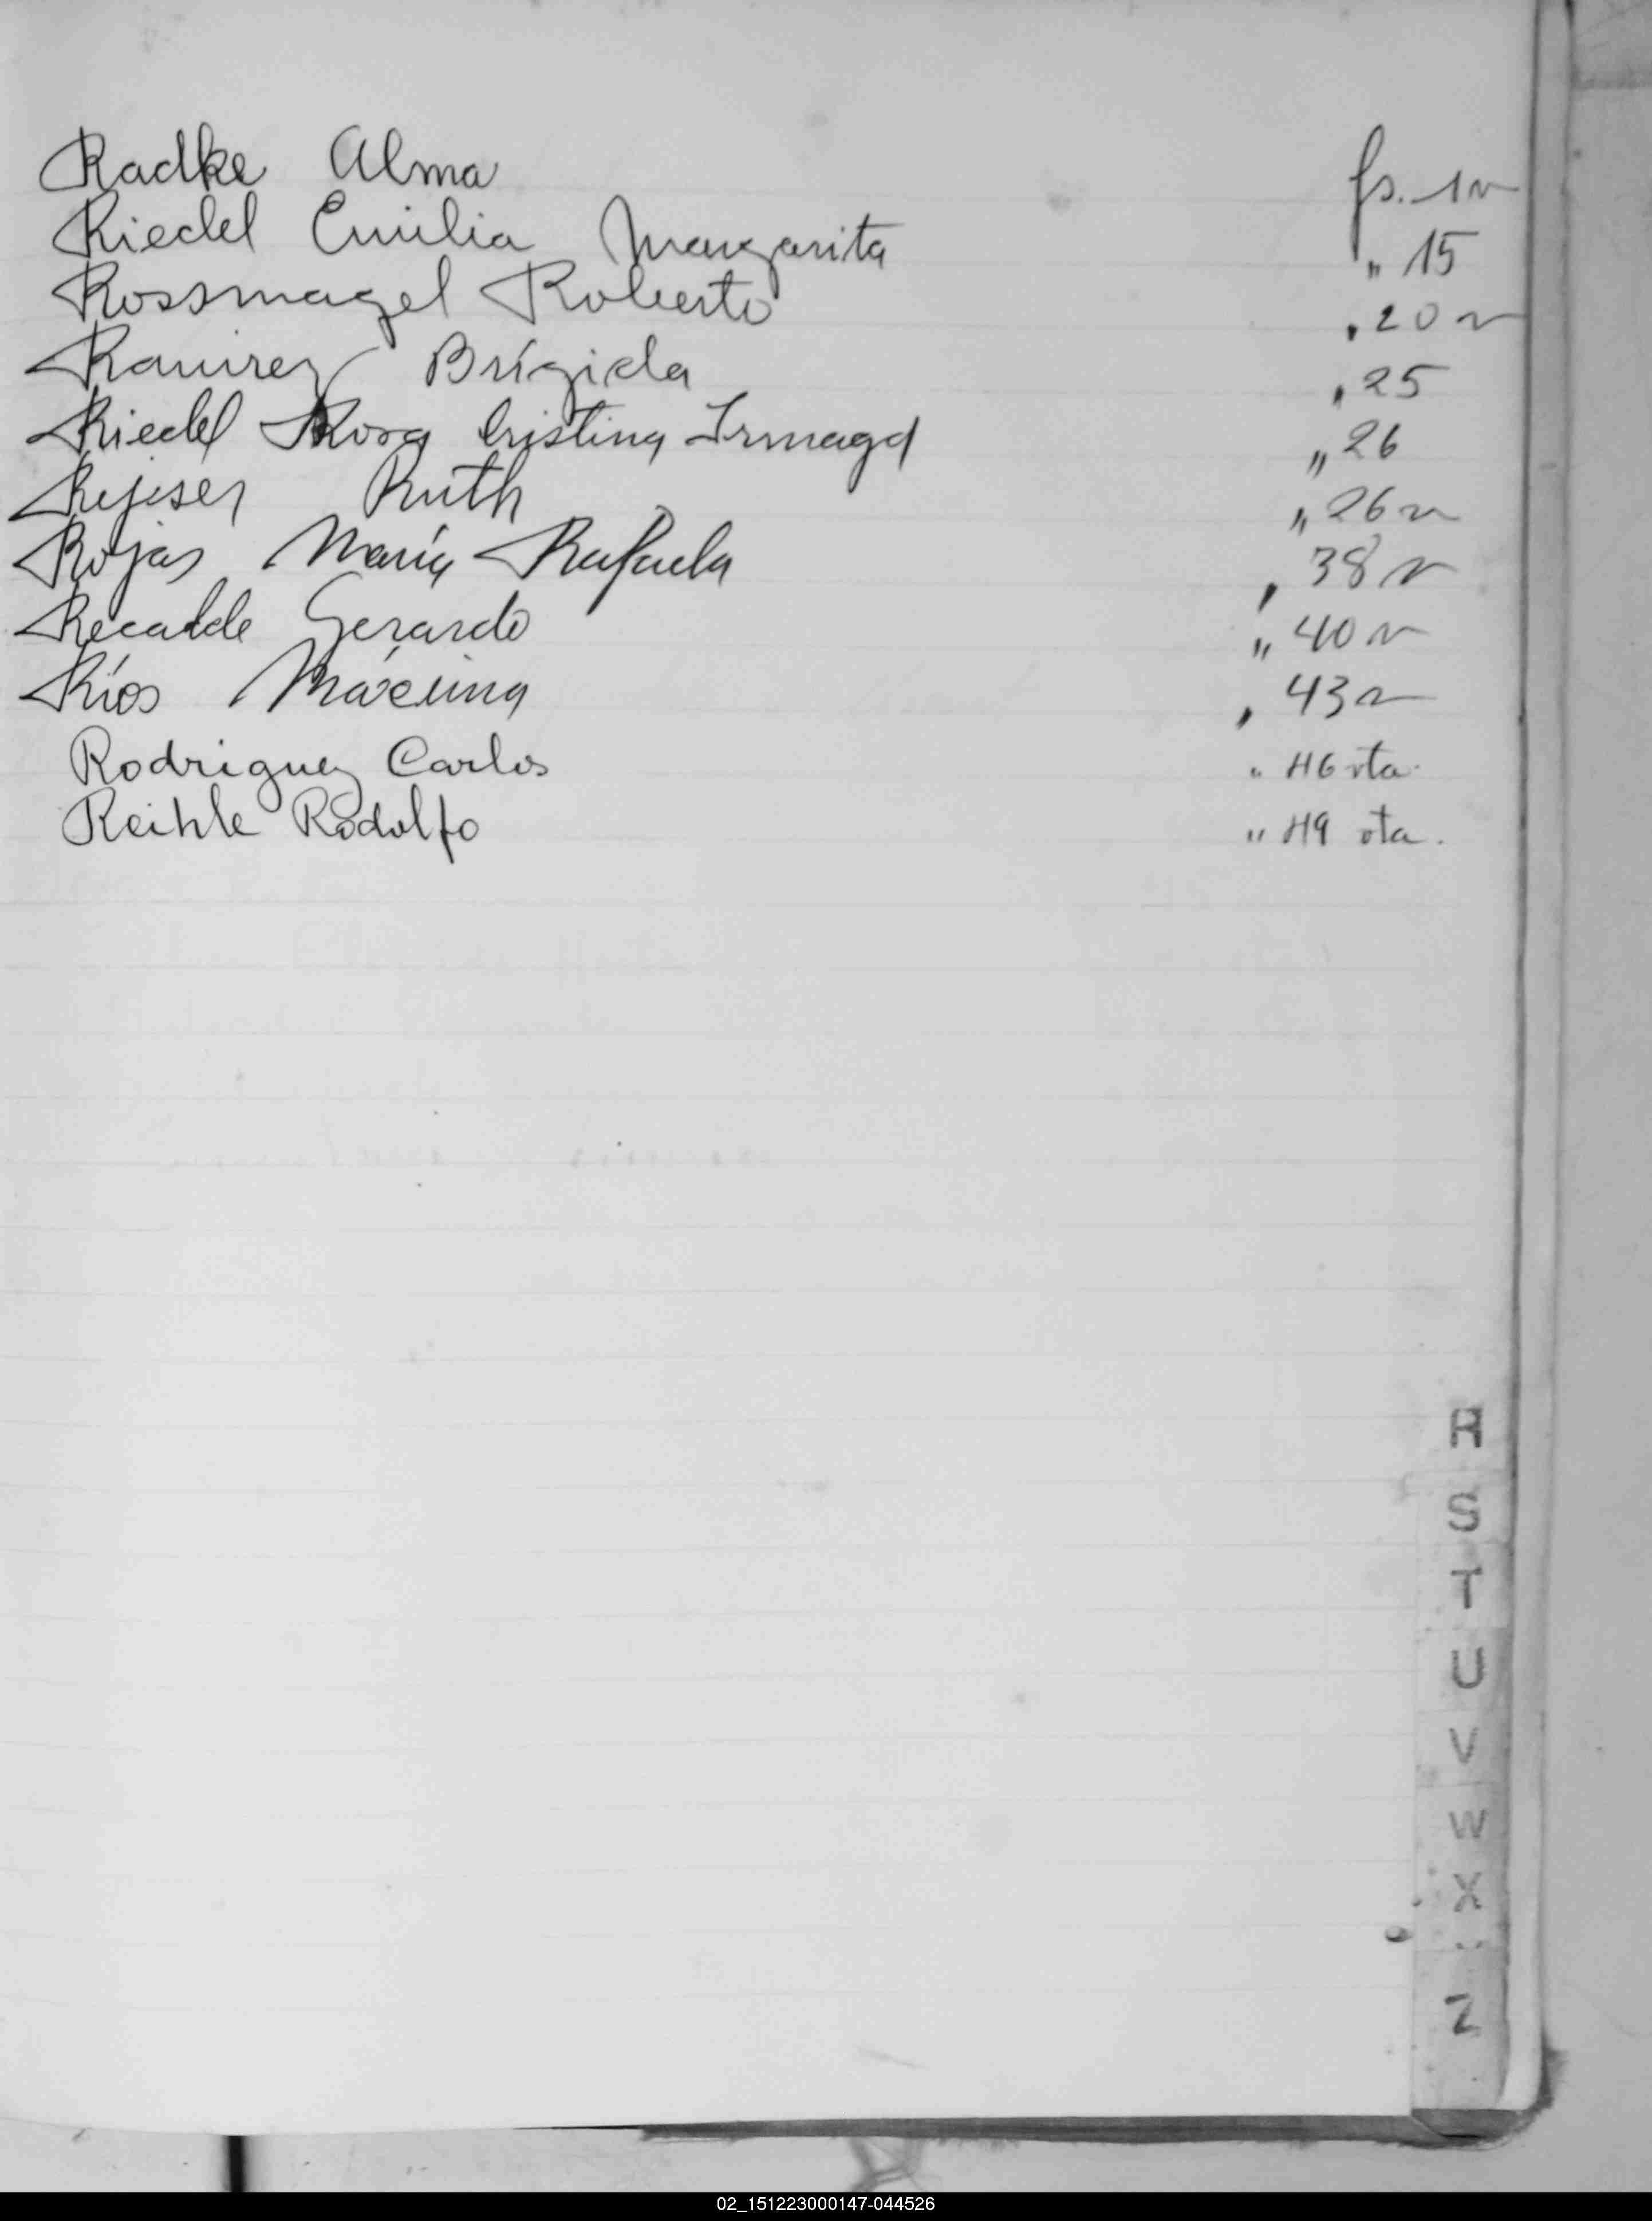 Radke Alma fs. 1v
Riedel Emilia Margarita " 15
Rossmagel Roberto " 20 v
Ramirez Brígida " 25
Riedel Rosa Cristina Irmagd " 26
Ruth " 26 v
Rojas María Rafaela " 38 v
Recalde Gerardo " 40 v
Ríos Máxima " 43 v
Rodriguez Carlos " 46 vta.
Reihle Rodolfo " 49 vta.
R
S
T
U
V
W
X
Z
02_151223000147-044526